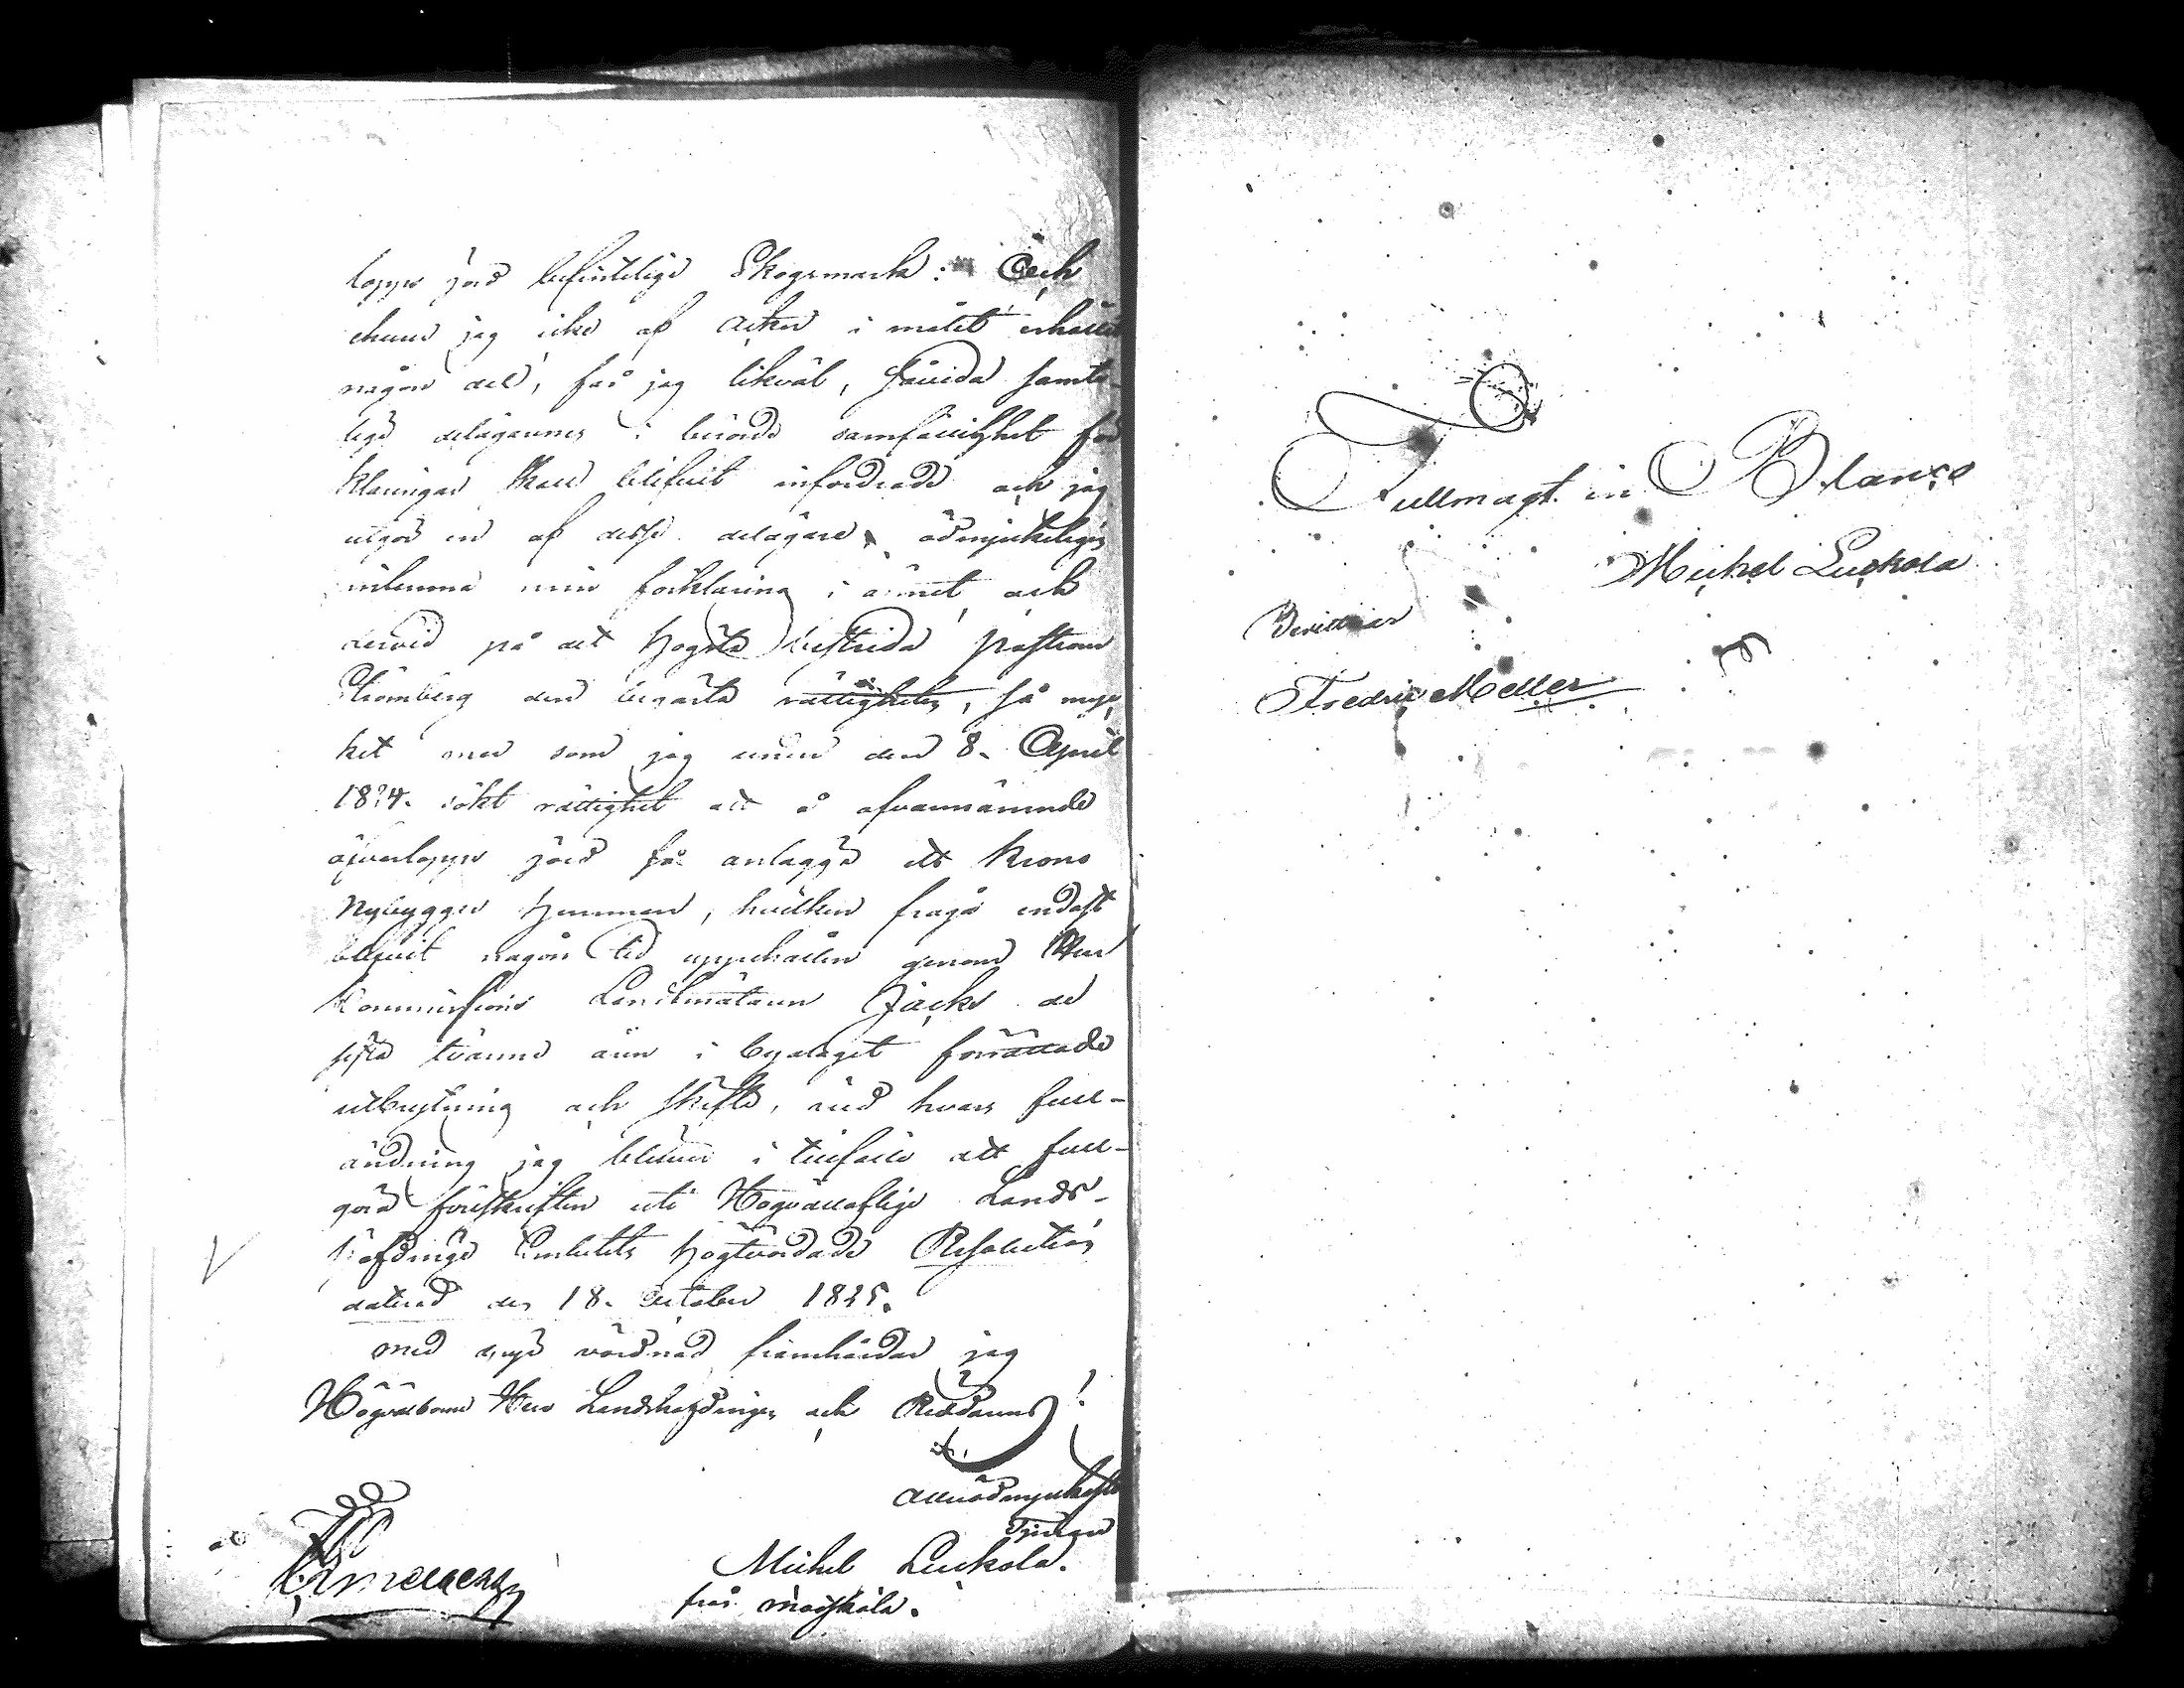 lopps jord befintelige Skogsmark: Och
ehuru jag icke af Acten i målet erhållit
någon del, får jag likväl, såvida samte-
lige delägarnes i berörde samfällighet för
klaringar skall blifvit infordrade och jag
utgör en af desse delägare, ödmjukeligen
inlemna min förklaring i ämnet och
dervid på det högsta bestrida
Strömberg den begärta rättigheten, så myc
ket mer som jag under den 8. April
1824. sökt rättighet att å ofvannämnde
öfverlopps jord få anlägga ett Krono
Nybygges Hemman, hvilken fråga endast
blifvit någon tid uppehållen genom Herr
Kommissions Landtmätaren Jacks de
sista tvänne åren i byalaget förrättade
utbrytning och skifte, vid hvars full-
ändning jag blifver i tillfälle att full-
göra föreskriften uti Högvällofliga Lands-
höfdinge Embetets högtvördade Resolution
daterad den 18. October 1825.
med djup vördnad framhärdar jag
Högvälborne Herr Landshöfdingen och Riddarens!
Allerödmjukaste
Tjenare
Michel Luckola.
från
Fullmagt in Blanco
Michel Luckola
Bevittnar
Fredric Meller